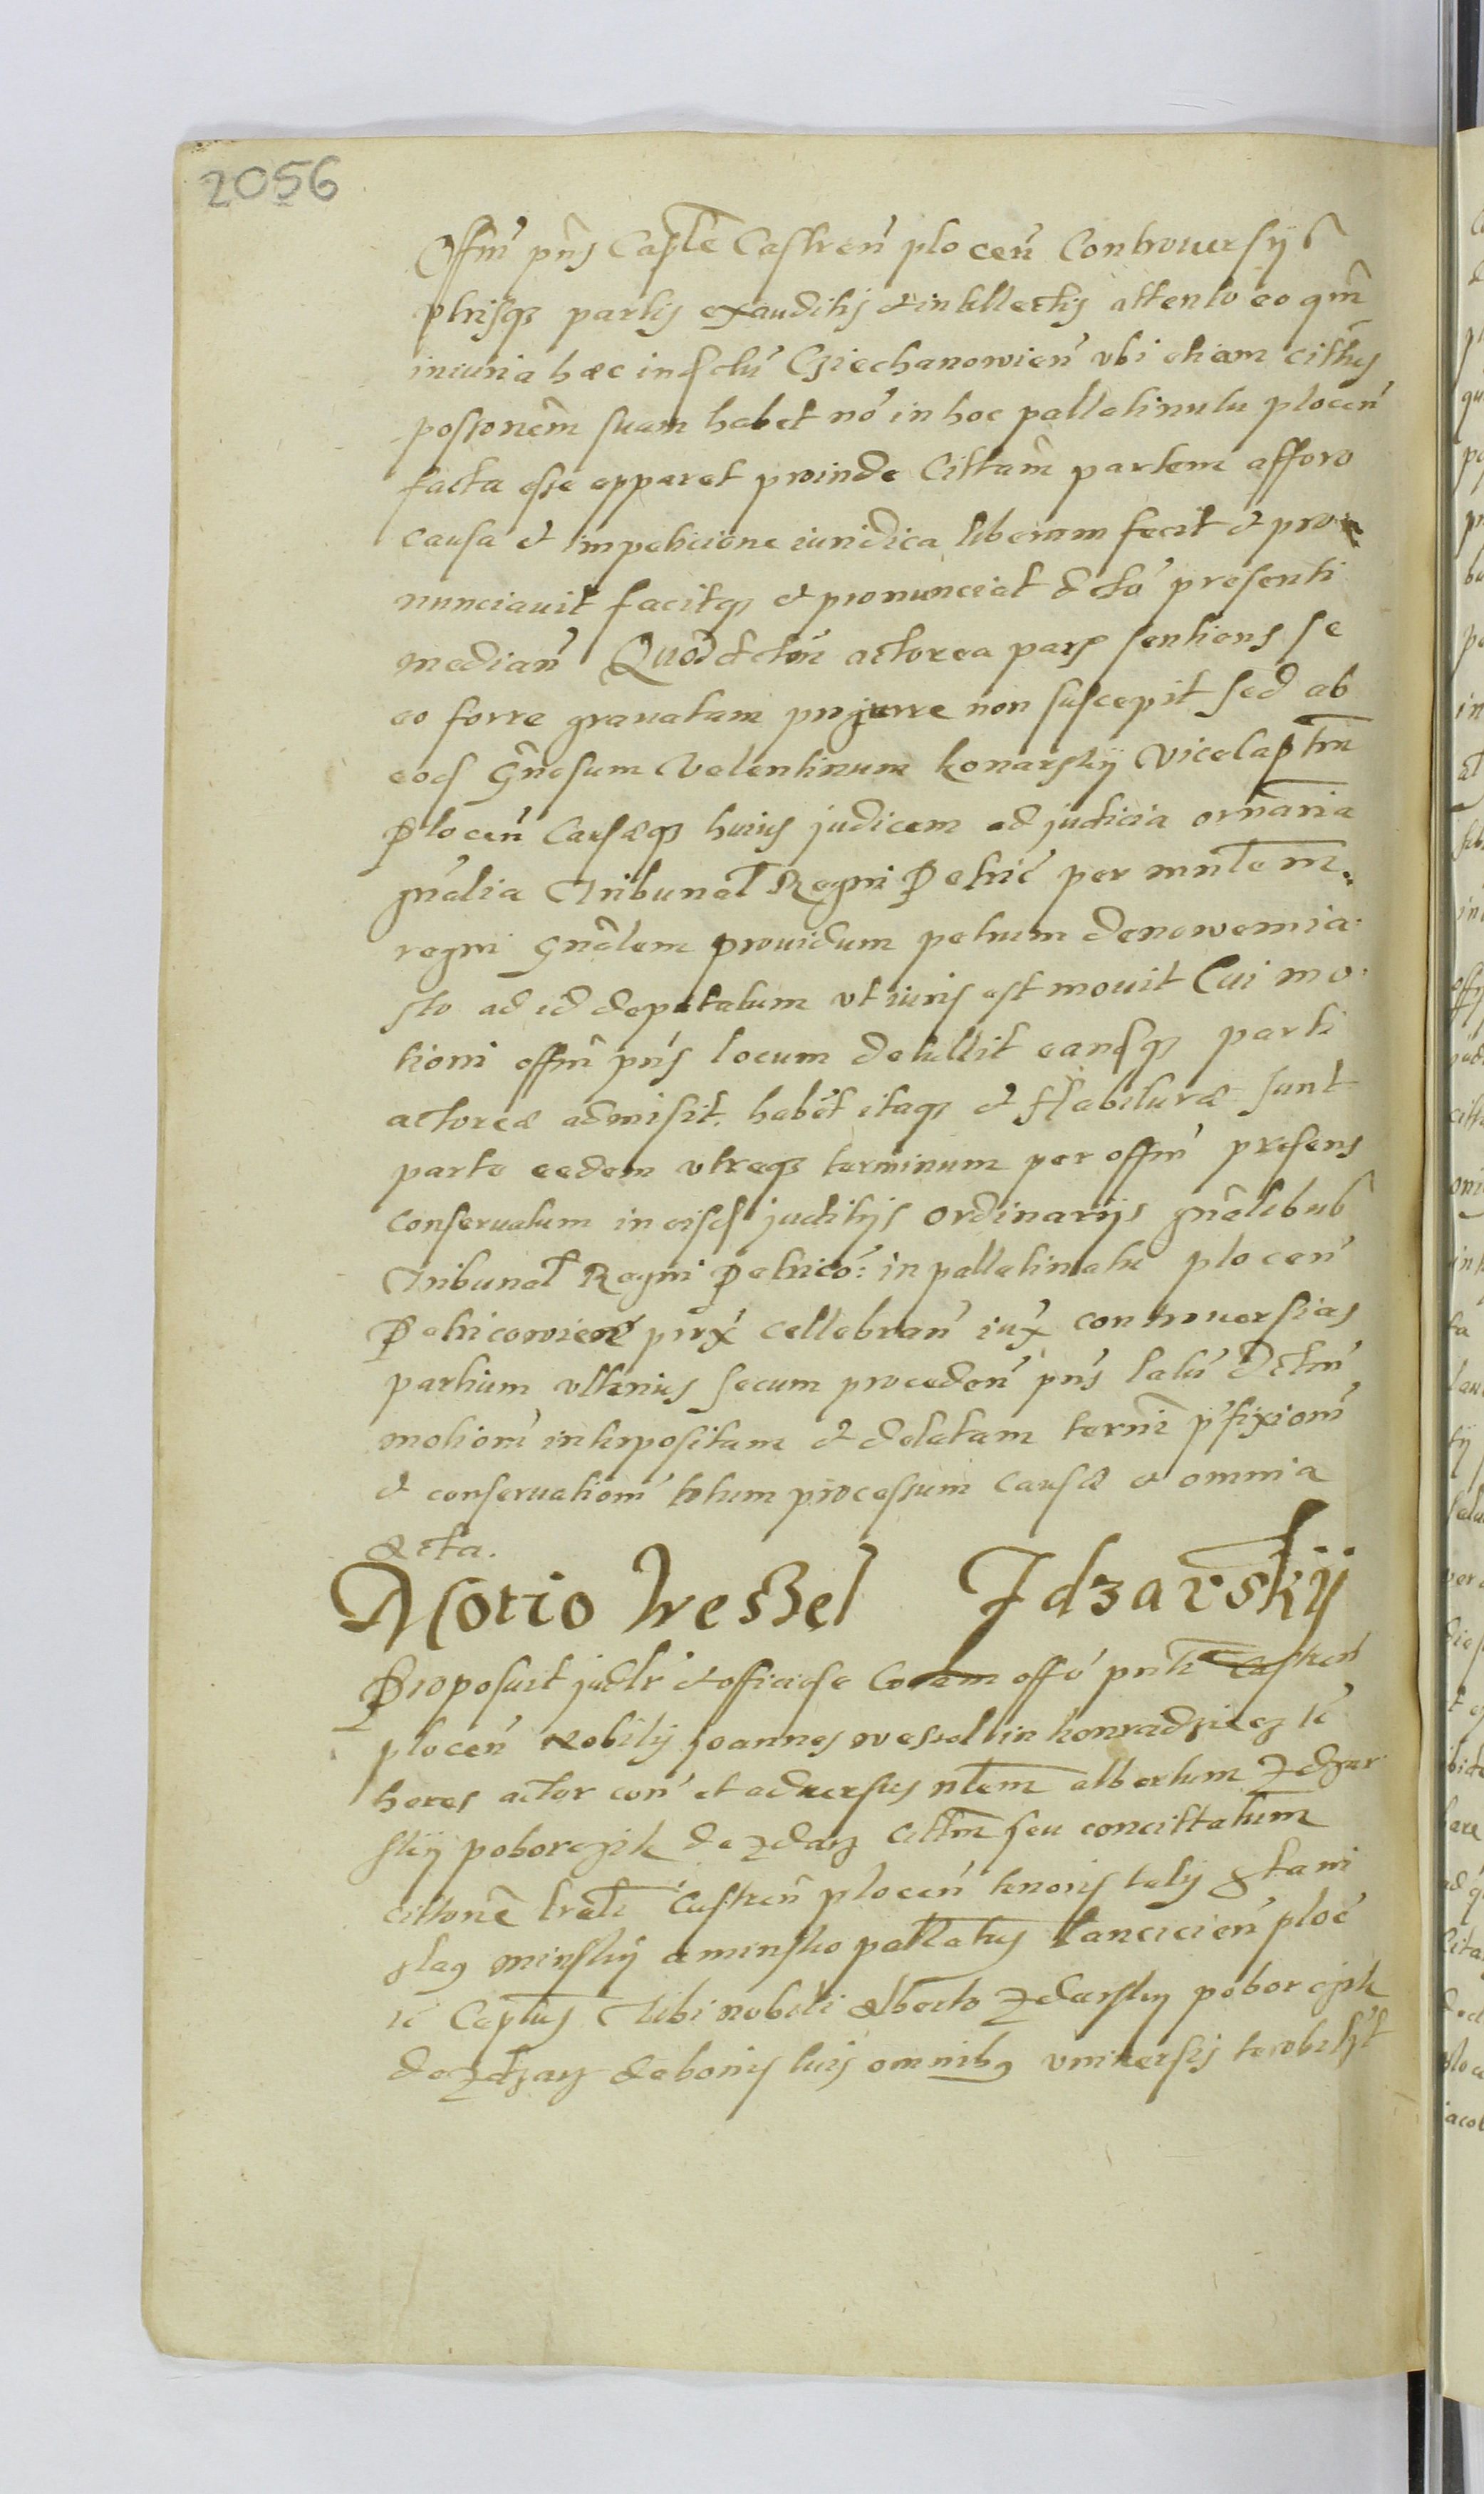 2056
Offm̃ pñs Capŧle Castreñ ploceñ Controuersijs
vtrisq; partis exauditis et intellectis attento eo qm̃
iniuria hæc in dictu Cziechanowieñ vbi etiam cittus
possonem̃ suam habet nõ in hoc pallatinatu ploceñ
facta esse apparet proinde Cittam̃ partem afforo
causa et impeticione iuridica liberam fecit et pro:
nunciauit facitq; et pronunciat dcto presenti
mediañ Quod dctm̃ actorea pars sentiens se
eo forre grauatam in non suscepit sed ab
eod Gñosum Valentinum Konarskij Vicecapŧm
Ploceñ Causæq; huius judicem ad judicia ornaria
gñalia Tribunal Regni Petric per mnŧem
regni Gñalem prouidum petrum de nowemia:
sto ad id deputatum vt iuris est mouit Cui mo:
tioni offm̃ pñs locum detullit eandq; parti
actoreæ admisit. habet itaq; et habituræ sunt
parte eedem vtræq; terminum per offm̃ presens
conseruatum in eisd juditijs ordinarijs gñalibus
Tribunal Regni Petrico: in pallatinatu ploceñ
Petricowien prox cellebrañ iux controuersias
partium vlterius secum procedeñ pñs latũ Dctm̃
motionẽ interpositam et delatam termi p̃fixionẽ
et conseruationẽ totum processum Causæ et omnia
acta.
Motio Weszel Idzarskij
Proposuit judlr et officiose Coram offõ pnti Castreñ
ploceñ Nobilis Joannes wessel in konradziecz tc
heres actor con et aduersus nŧem albertum Zdzar
skij poborczik de zdarz cittm̃ seu concittatum
cittonẽ lrali Castreñ ploceñ tenoris talis Stani
slaus minskij a minsko pallatus Lanciceñ ploc
tc Capŧus Tibi nobili Alberto Zdarskij poborczik
de Zdzarz de bonis tuis omnib; vniuersis